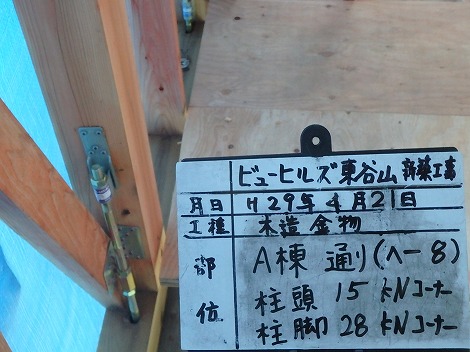 ビューヒルズ東谷山 新築工事
月日 H29年4月21日
工種 木造金物
部位 A棟 通り(ヘー8)
柱頭 15 kNコーナー
柱脚 28 kNコーナー